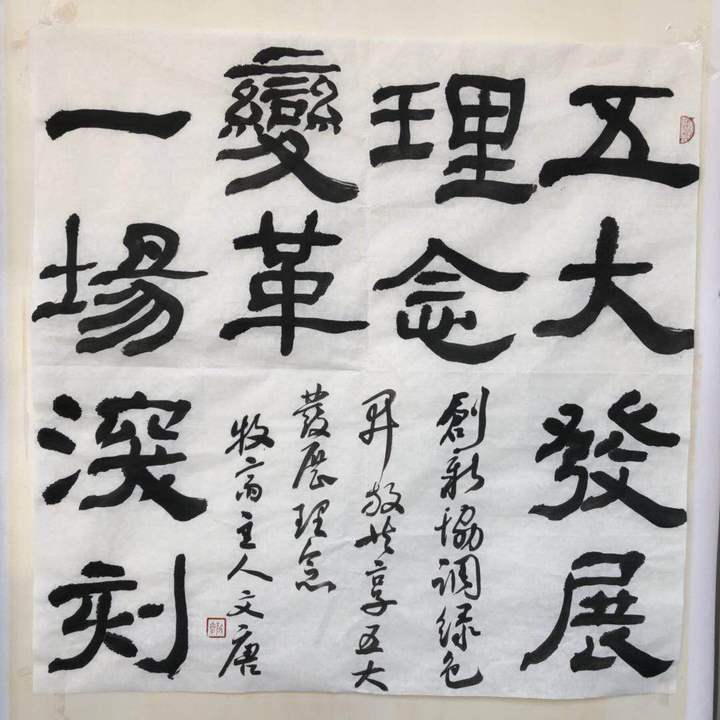 五大發展
理念
變革
一場深刻
創新協调绿色
开放共享五大
發展理念
牧斋主人文唐